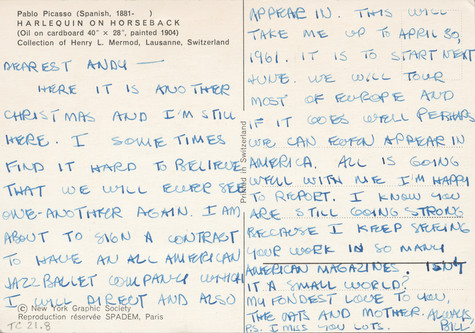 Pablo Picasso (Spanish, 1881-    )
HARLEQUIN ON HORSEBACK
(Oil on cardboard 40" × 28", painted 1904)
Collection of Henry L. Mermod, Lausanne, Switzerland
DEAREST ANDY —
HERE IT IS ANOTHER
CHRISTMAS AND I'M STILL
HERE. I SOME TIMES
FIND IT HARD TO BELIEVE
THAT WE WILL EVER SEE
ONE-ANOTHER AGAIN. I AM
ABOUT TO SIGN A CONTRAST
TO HAVE AN ALL AMERICAN
JAZZ BALLET COMPANY WHICH
I WILL DIRECT AND ALSO
© New York Graphic Society
Reproduction réservée SPADEM, Paris
TC 21.8
Printed in Switzerland
APPEAR IN. THIS WILL
TAKE ME UP TO APRIL 30,
1961. IT IS TO START NEXT
JUNE. WE WILL TOUR
MOST OF EUROPE AND
IF IT GOES WELL PERHAPS
WE CAN EVEN APPEAR IN
AMERICA. ALL IS GOING
WELL WITH ME I'M HAPPY
TO REPORT. I KNOW YOU
ARE STILL GOING STRONG
BECAUSE I KEEP SEEING
YOUR WORK IN SO MANY
AMERICAN MAGAZINES. ISN'T
IT A SMALL WORLD?
MY FONDEST LOVE TO YOU,
THE CATS AND MOTHER. ALWAYS
P.S. I MISS YOU LOTS.